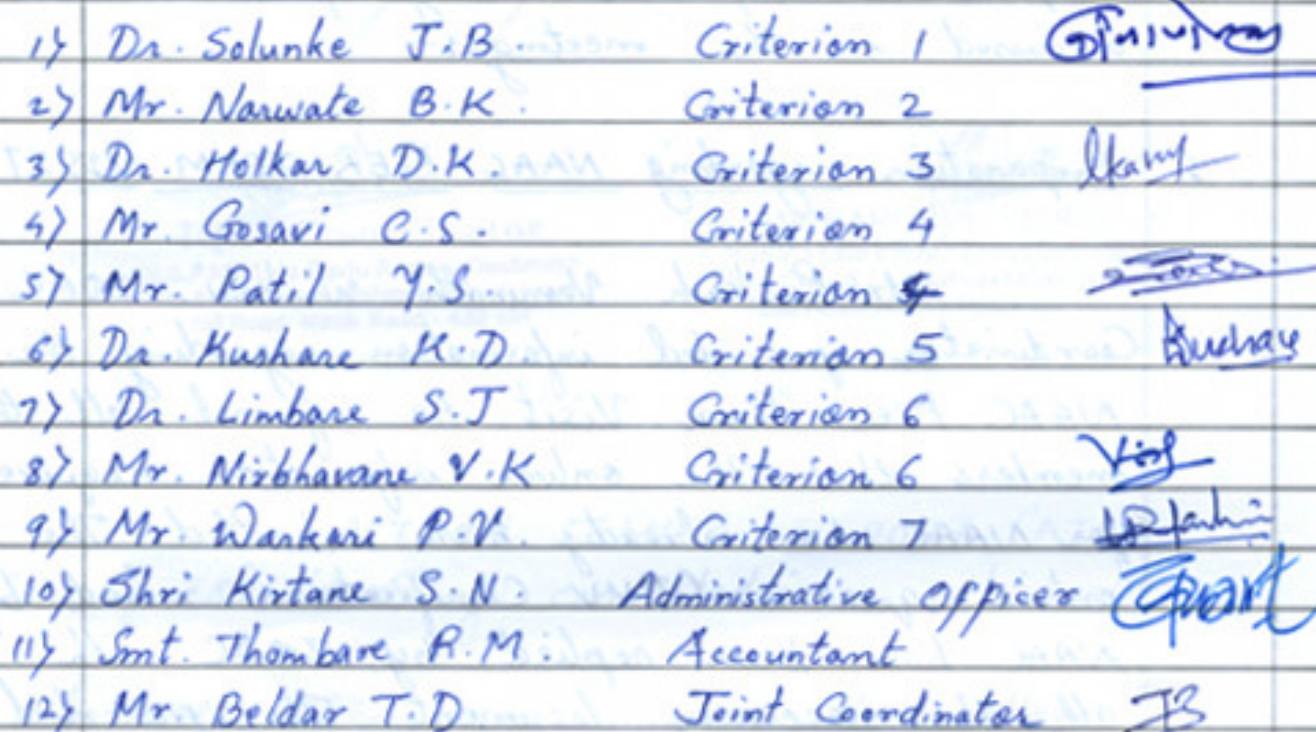 1) Dr. Solunke J.B. Criterion 1
2) Mr. Narwate B.K. Criterion 2
3) Dr. Holkar D.K. Criterion 3
4) Mr. Gosavi C.S. Criterion 4
5) Mr. Patil Y.S. Criterion 4
6) Dr. Kushare K.D Criterion 5 Kushare
7) Dr. Limbare S.J Criterion 6
8) Mr. Nirbhavane V.K Criterion 6
9) Mr. Warkari P.V. Criterion 7
10) Shri Kirtane S.N. Administrative Officer
11) Smt. Thombare R.M. Accountant
12) Mr. Beldar T.D Joint Coordinator